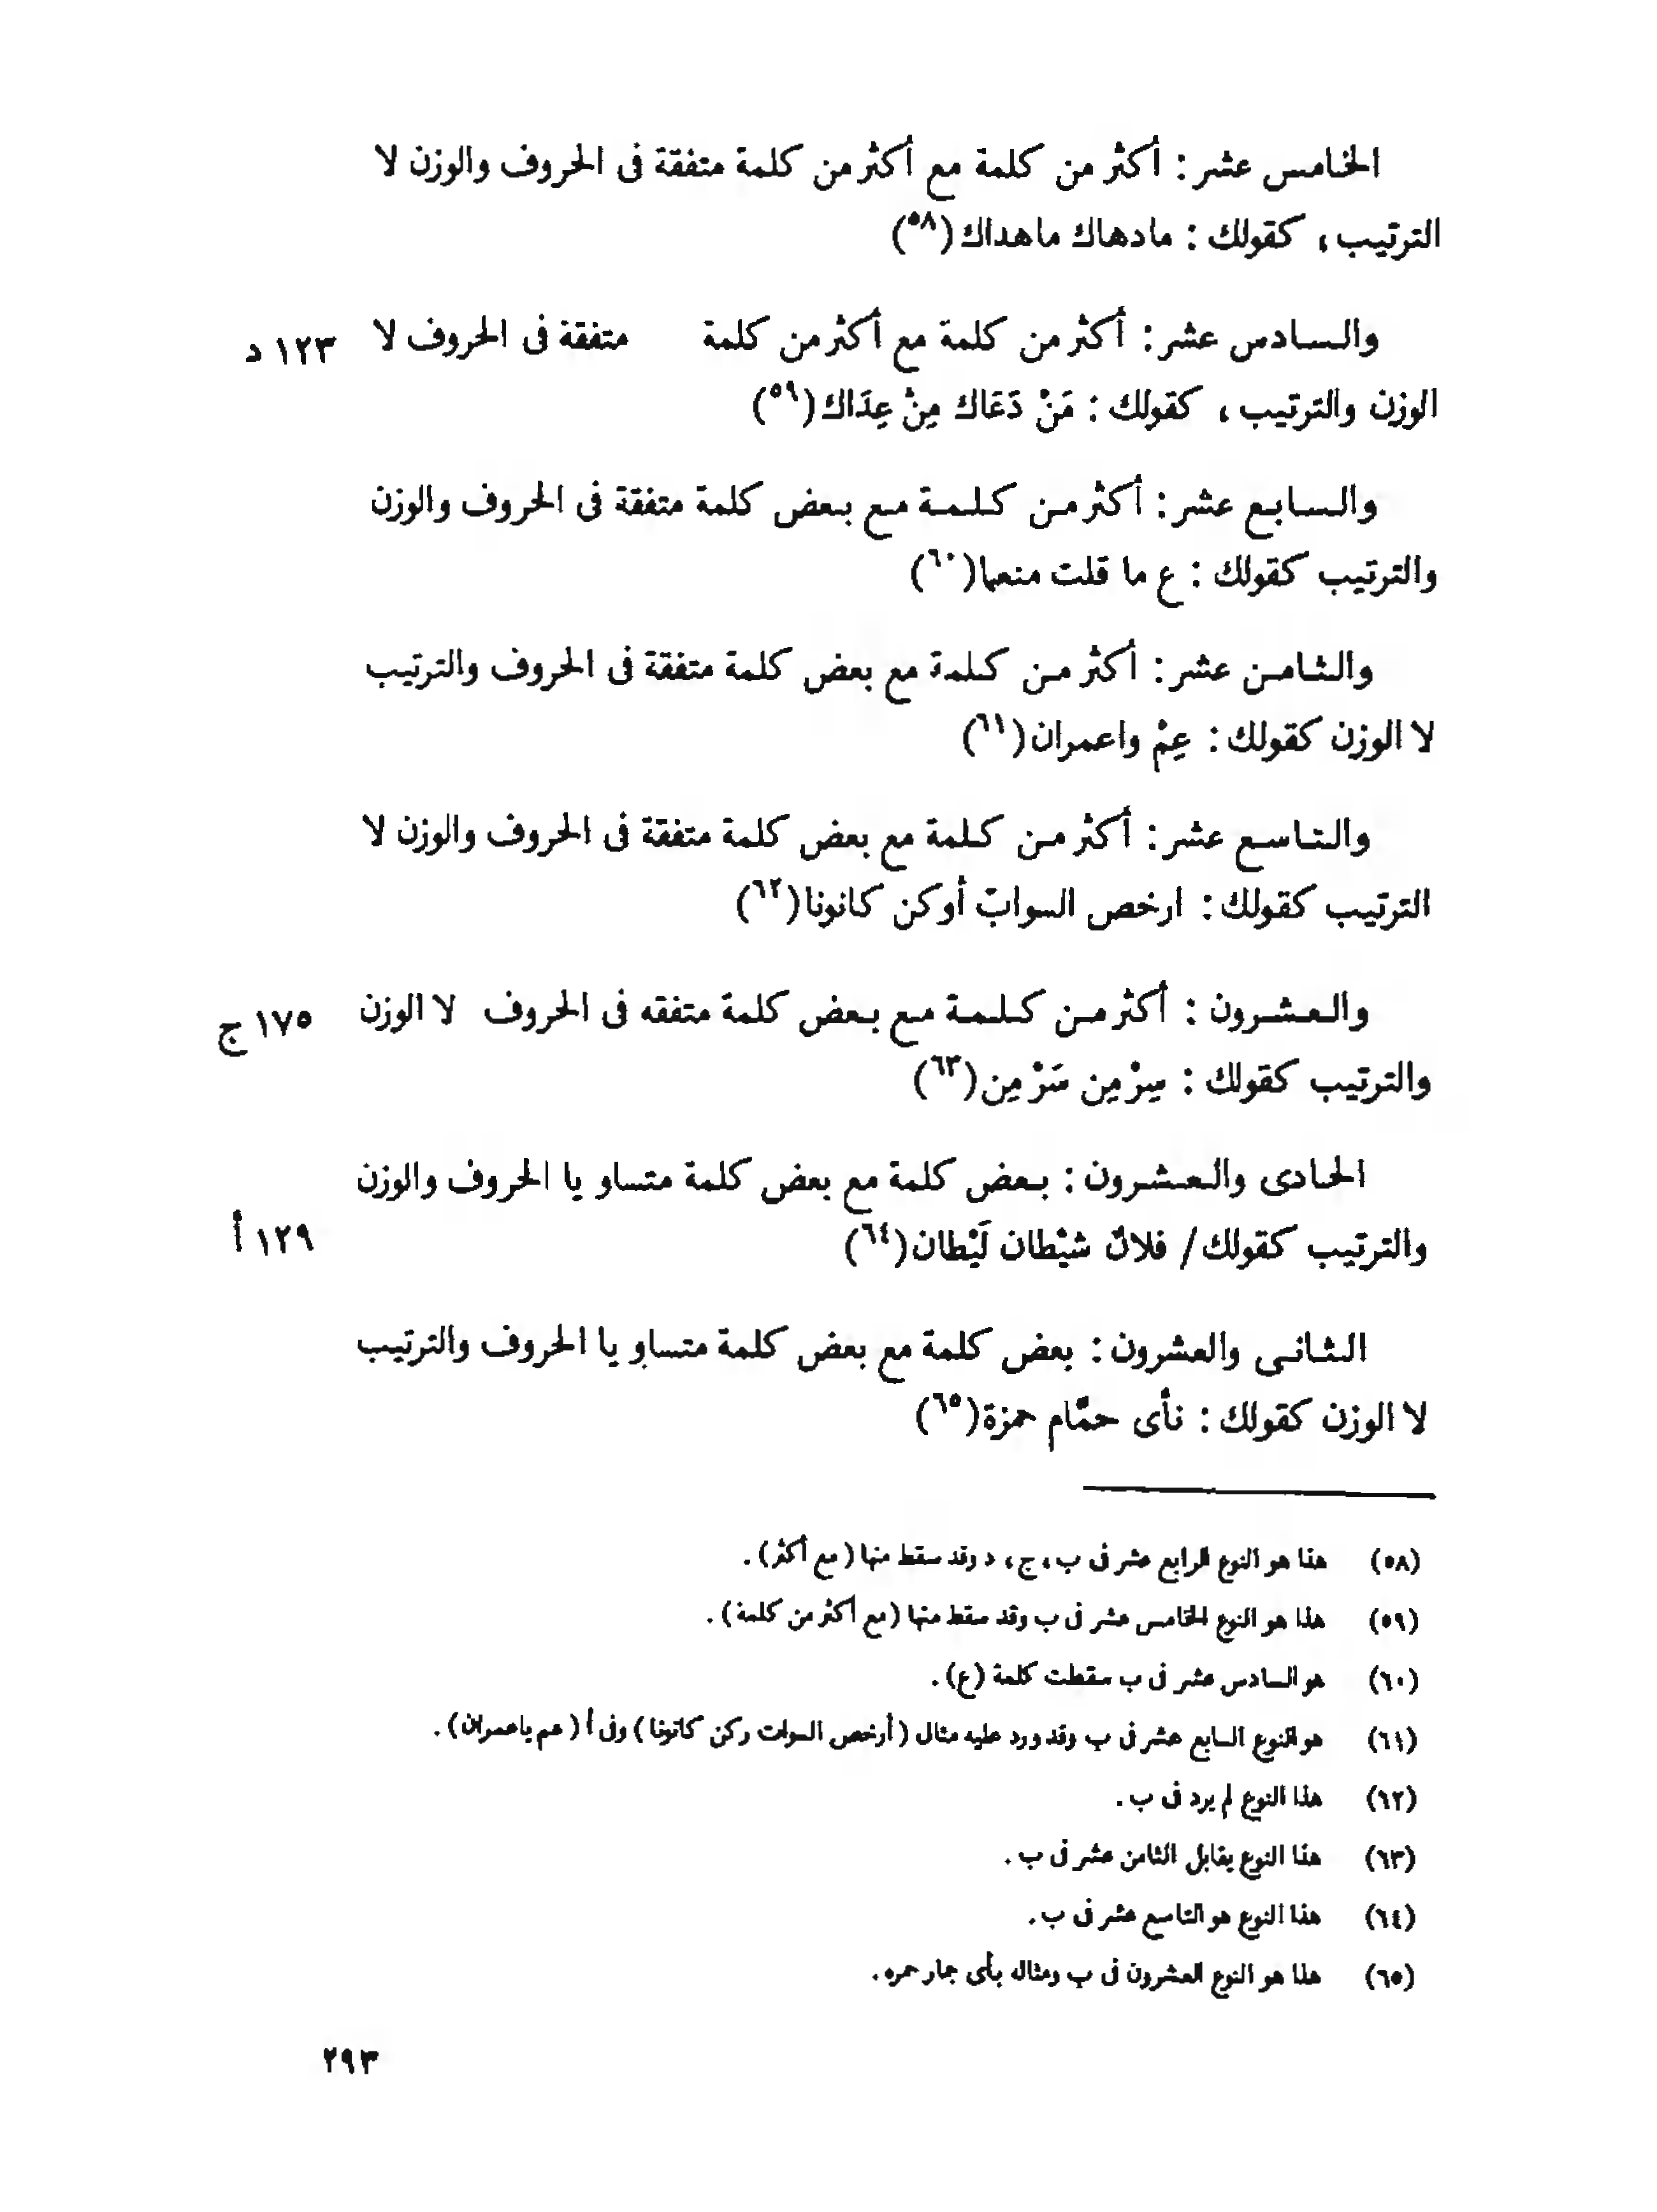 الخامس عشر : أكثر من كلمة مع أكثر من كلمة متفقة فى الحروف والوزن لا
الترتيب ، كقولك : مادهاك ماهداك(٥٨)
والسادس عشر : أكثر من كلمة مع أكثر من كلمة متفقة فى الحروف لا ١٢٣ د
الوزن والترتيب ، كقولك : مَنْ دَعَاك مِنْ عِدَاك(٥٩)
والسابع عشر : أكثر من كلمة مع بعض كلمة متفقة فى الحروف والوزن
والترتيب كقولك : ع ما قلت منعما(٦٠)
والثامن عشر : أكثر من كلمة مع بعض كلمة متفقة فى الحروف والترتيب
لا الوزن كقولك : عِمْ واعمران(٦١)
والتاسع عشر : أكثر من كلمة مع بعض كلمة متفقة فى الحروف والوزن لا
الترتيب كقولك : ارخص السوابّ أوكن كانونا(٦٢)
والعشرون : أكثر من كلمة مع بعض كلمة متفقه فى الحروف لا الوزن ١٧٥ ج
والترتيب كقولك : سِرْ مِن سَرْ مِن(٦٣)
الحادى والعشرون : بعض كلمة مع بعض كلمة متساو يا الحروف والوزن
والترتيب كقولك / فلانٌ شيْطان لَيْطان(٦٤) ١٢٩ أ
الثانى والعشرون : بعض كلمة مع بعض كلمة متساو يا الحروف والترتيب
لا الوزن كقولك : نأى حمَّام حمزة(٦٥)
(٥٨) هذا هو النوع الرابع عشر فى ب ، ج ، د وقد سقط منها ( مع أكثر ) .
(٥٩) هذا هو النوع الخامس عشر فى ب وقد سقط منها ( مع أكثر من كلمة ) .
(٦٠) هو السادس عشر فى ب سقطت كلمة (ع) .
(٦١) هو النوع السابع عشر فى ب وقد ورد عليه مثال ( أرخص السوات ركن كانونا ) وفى أ ( عم ياعمران ) .
(٦٢) هذا النوع لم يرد فى ب .
(٦٣) هذا النوع يقابل الثامن عشر فى ب .
(٦٤) هذا النوع هو التاسع عشر فى ب .
(٦٥) هذا هو النوع العشرون فى ب ومثاله بأى جمار حمره .
٢٩٣